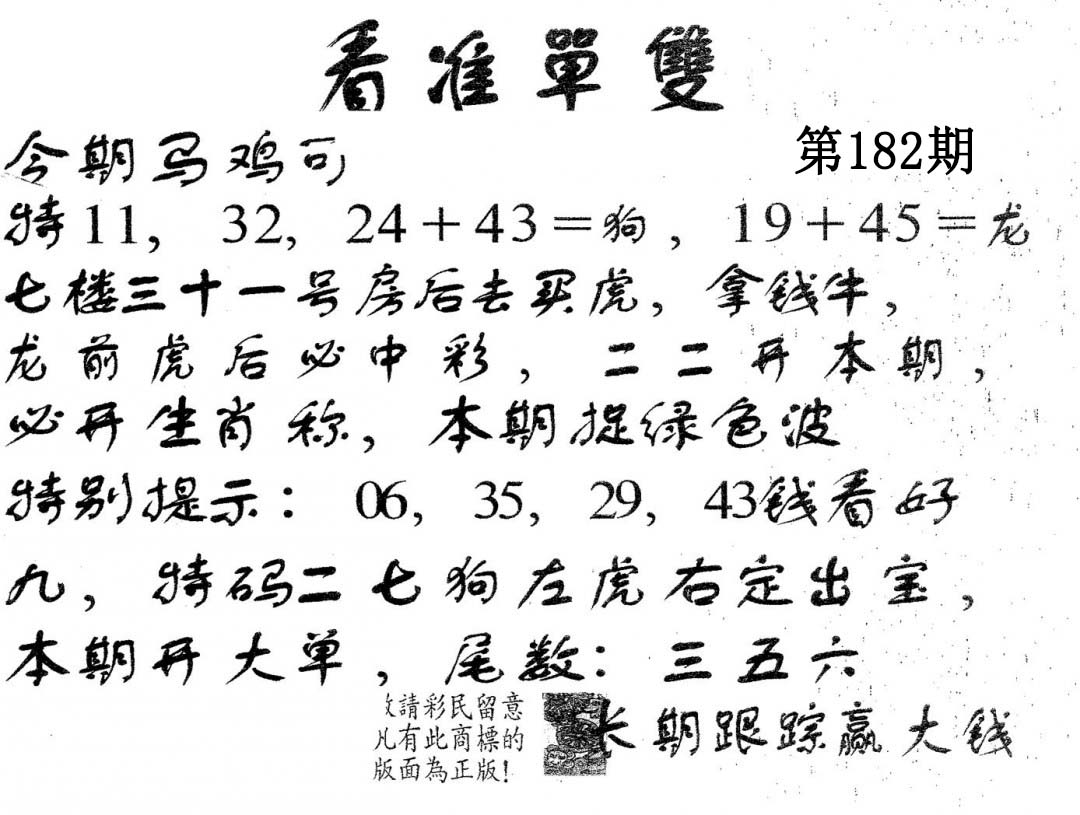 看准單雙
第182期
今期马鸡可
特11, 32, 24+43=狗, 19+45=龙
七楼三十一号房后去买虎, 拿钱牛,
龙前虎后必中彩, 二二开本期,
必开生肖称, 本期捉绿色波
特别提示: 06, 35, 29, 43钱看好
九, 特码二七狗左虎右定出宝,
本期开大单, 尾数: 三五六
請彩民留意
凡有此商標的
版面為正版!
长期跟踪赢大钱